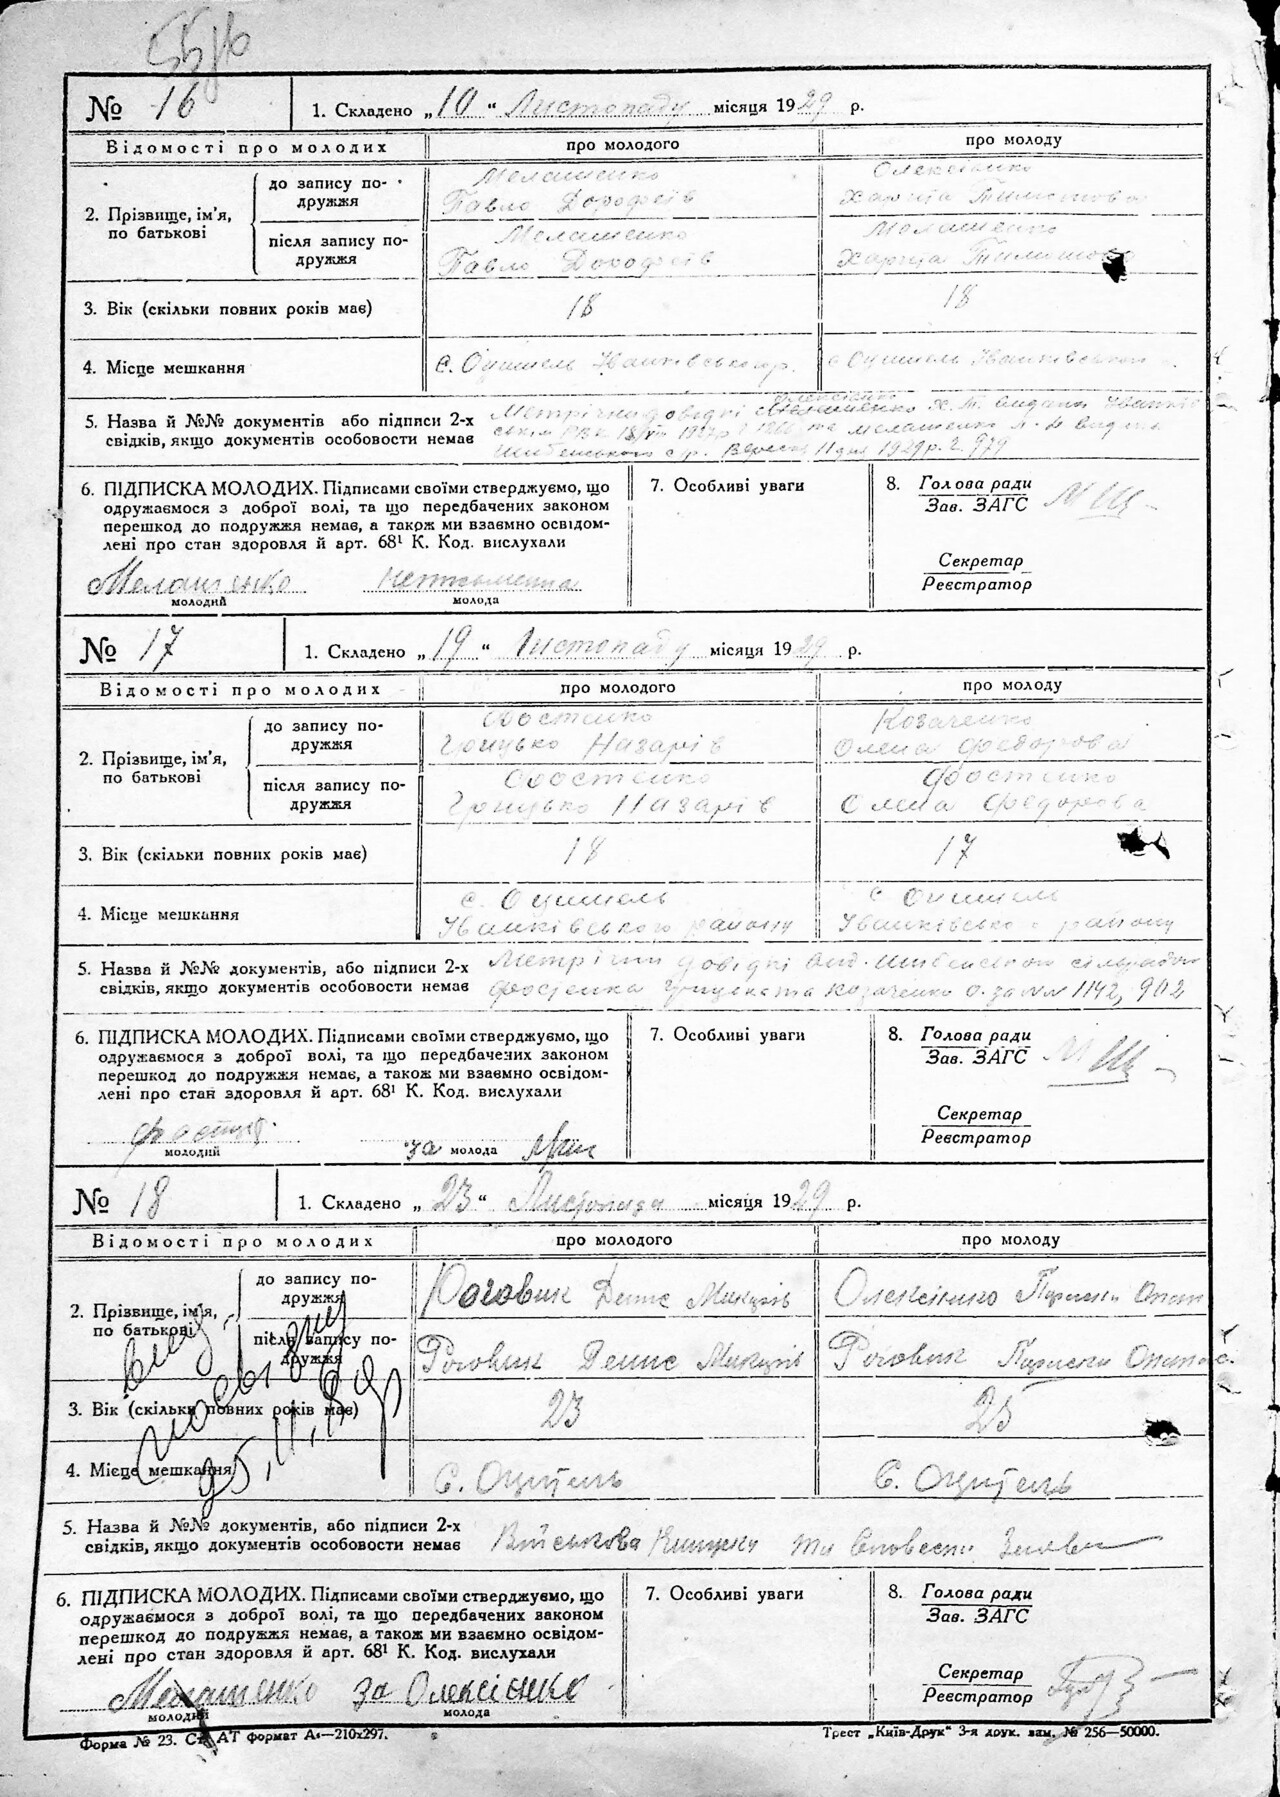 № 16 1. Складено „10“ Листопаду місяця 1929 р.
Відомості про молодих про молодого про молоду
2. Прізвище, ім'я, по батькові
до запису по-
дружжя
Мелашенко
Павло Дорофеїв
Олексієнко
Харитя Тимошова
після запису по-
дружжя
Мелашенко
Павло Дорофеїв
Мелашенко
Харитя Тимошова
3. Вік (скільки повних років має) 18 18
4. Місце мешкання с. Оцитель Іванківського р. с Оцитель Іванківського
5. Назва й №№ документів або підписи 2-х
свідків, якщо документів особовости немає
Олексієнко
Метрічни довідкі Мелашенко Х. Т. видана Іванків
ським РВК та Мелашенко видана
с/р. Вересня 11 дня 1929 р. 979
6. ПІДПИСКА МОЛОДИХ. Підписами своїми стверджуємо, що
одружаємося з доброї волі, та що передбачених законом
перешкод до подружжя немає, а також ми взаємно освідом-
лені про стан здоровля й арт. 68¹ К. Код. вислухали
Мелашенко неписьменна
молодий молода
7. Особливі уваги
8. Голова ради
Зав. ЗАГС
Секретар
Реєстратор
№ 17 1. Складено „19“ Листопаду місяця 1929 р.
Відомості про молодих про молодого про молоду
2. Прізвище, ім'я,
по батькові
до запису по-
дружжя
Фостенко
Грицько Назарів
Козаченко
Олена Федорова
після запису по-
дружжя
Фостенко
Грицько Назарів
Фостенко
Олена Федорова
3. Вік (скільки повних років має) 18 17
4. Місце мешкання
с. Оцитель
Іванківського району
с Оцитель
Іванківського району
5. Назва й №№ документів, або підписи 2-х
свідків, якщо документів особовости немає
Метрічни довідкі вид. сільрадою
Фостенка Грицька та Козаченко О. за №№ 1142, 902
6. ПІДПИСКА МОЛОДИХ. Підписами своїми стверджуємо, що
одружаємося з доброї волі, та що передбачених законом
перешкод до подружжя немає, а також ми взаємно освідом-
лені про стан здоровля й арт. 68¹ К. Код. вислухали
молодий за молода
7. Особливі уваги
8. Голова ради
Зав. ЗАГС
Секретар
Реєстратор
№ 18 1. Складено „23“ Листопада місяця 1929 р.
Відомості про молодих про молодого про молоду
2. Прізвище, ім'я,
по батькові
до запису по-
дружжя
Роговик Денис Микитів Олексієнко Параски Опан
після запису по-
дружжя
Роговик Денис Микитів Роговик Параски Опанас.
3. Вік (скільки повних років має) 23 25
4. Місце мешкання с. Оцитель с. Оцитель
5. Назва й №№ документів, або підписи 2-х
свідків, якщо документів особовости немає
Військова Книжка та Словесна Заява
6. ПІДПИСКА МОЛОДИХ. Підписами своїми стверджуємо, що
одружаємося з доброї волі, та що передбачених законом
перешкод до подружжя немає, а також ми взаємно освідом-
лені про стан здоровля й арт. 68¹ К. Код. вислухали
Мелашенко за Олексієнко
молодий молода
7. Особливі уваги
8. Голова ради
Зав. ЗАГС
Секретар
Реєстратор
Форма № 23. Ст. АТ формат А₄—210x297.
Трест „Київ-Друк“ 3-я друк. зам. № 256—50000.